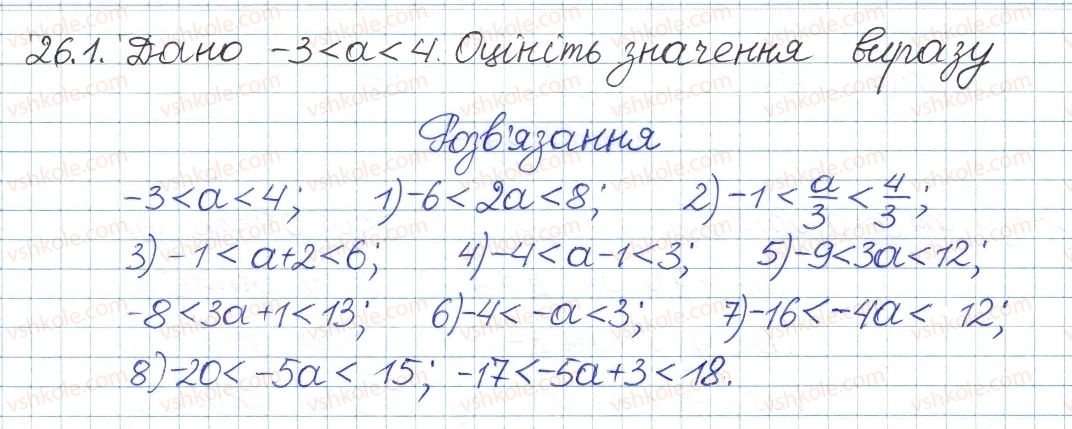 26.1. Дано -3<a<4. Оцініть значення виразу
Розв'язання
-3<a<4; 1) -6<2a<8; 2) -1<a/3<4/3;
3) -1<a+2<6; 4) -4<a-1<3; 5) -9<3a<12;
-8<3a+1<13; 6) -4<-a<3; 7) -16<-4a< 12;
8) -20<-5a< 15; -17<-5a+3<18.